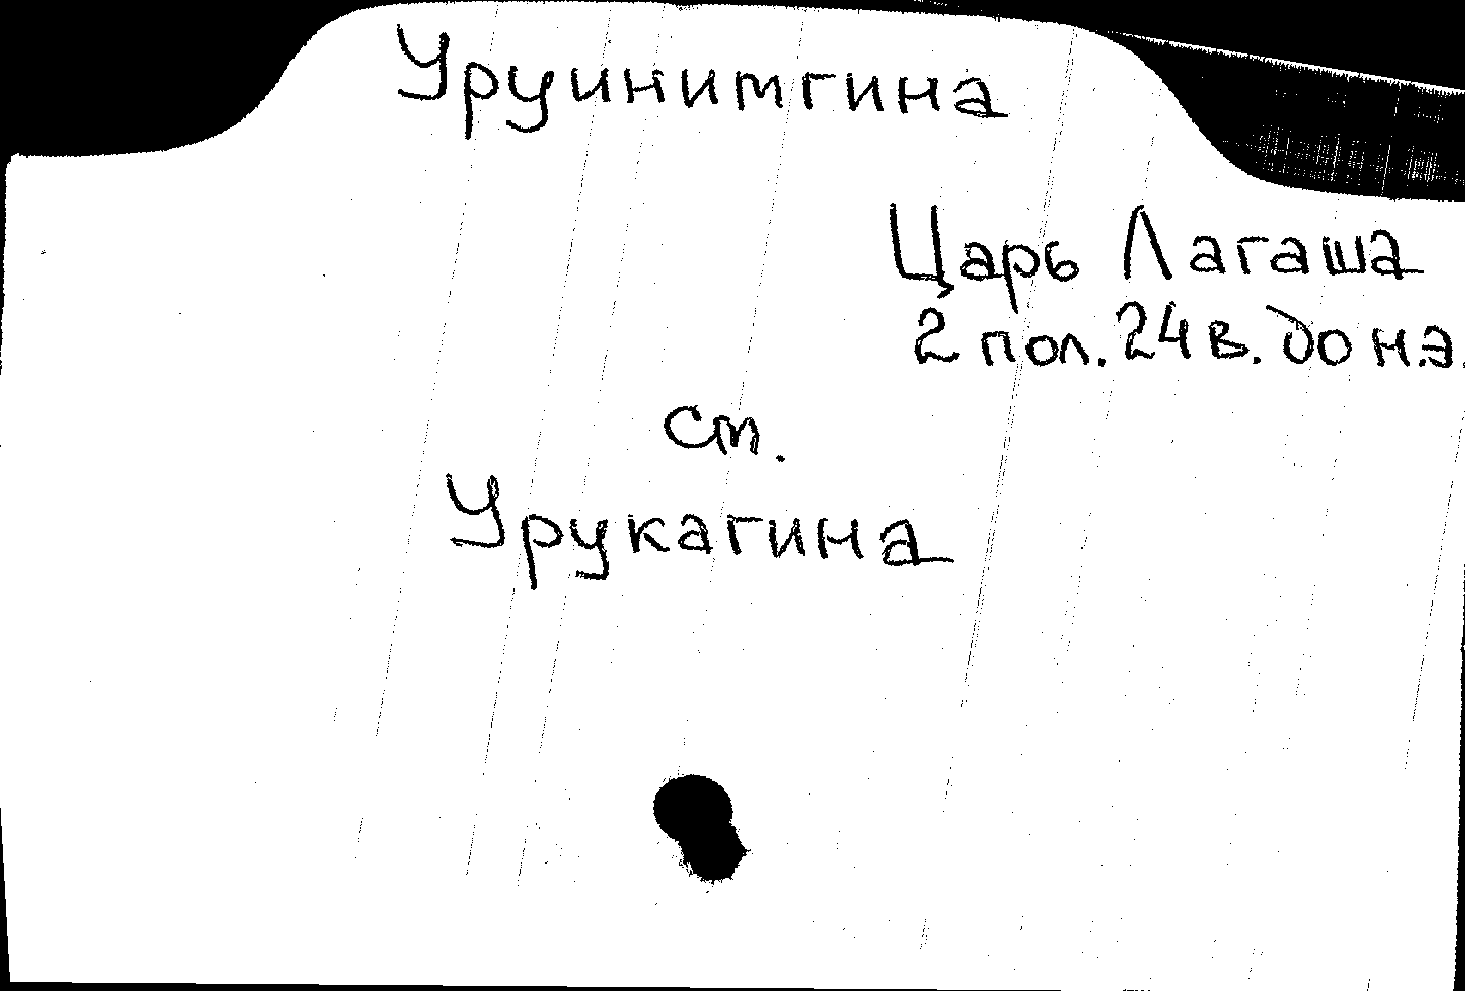 Уруинимгина
Царь Лагаша
2 пол. 24 в. до н.э.
ст.
Урукагина